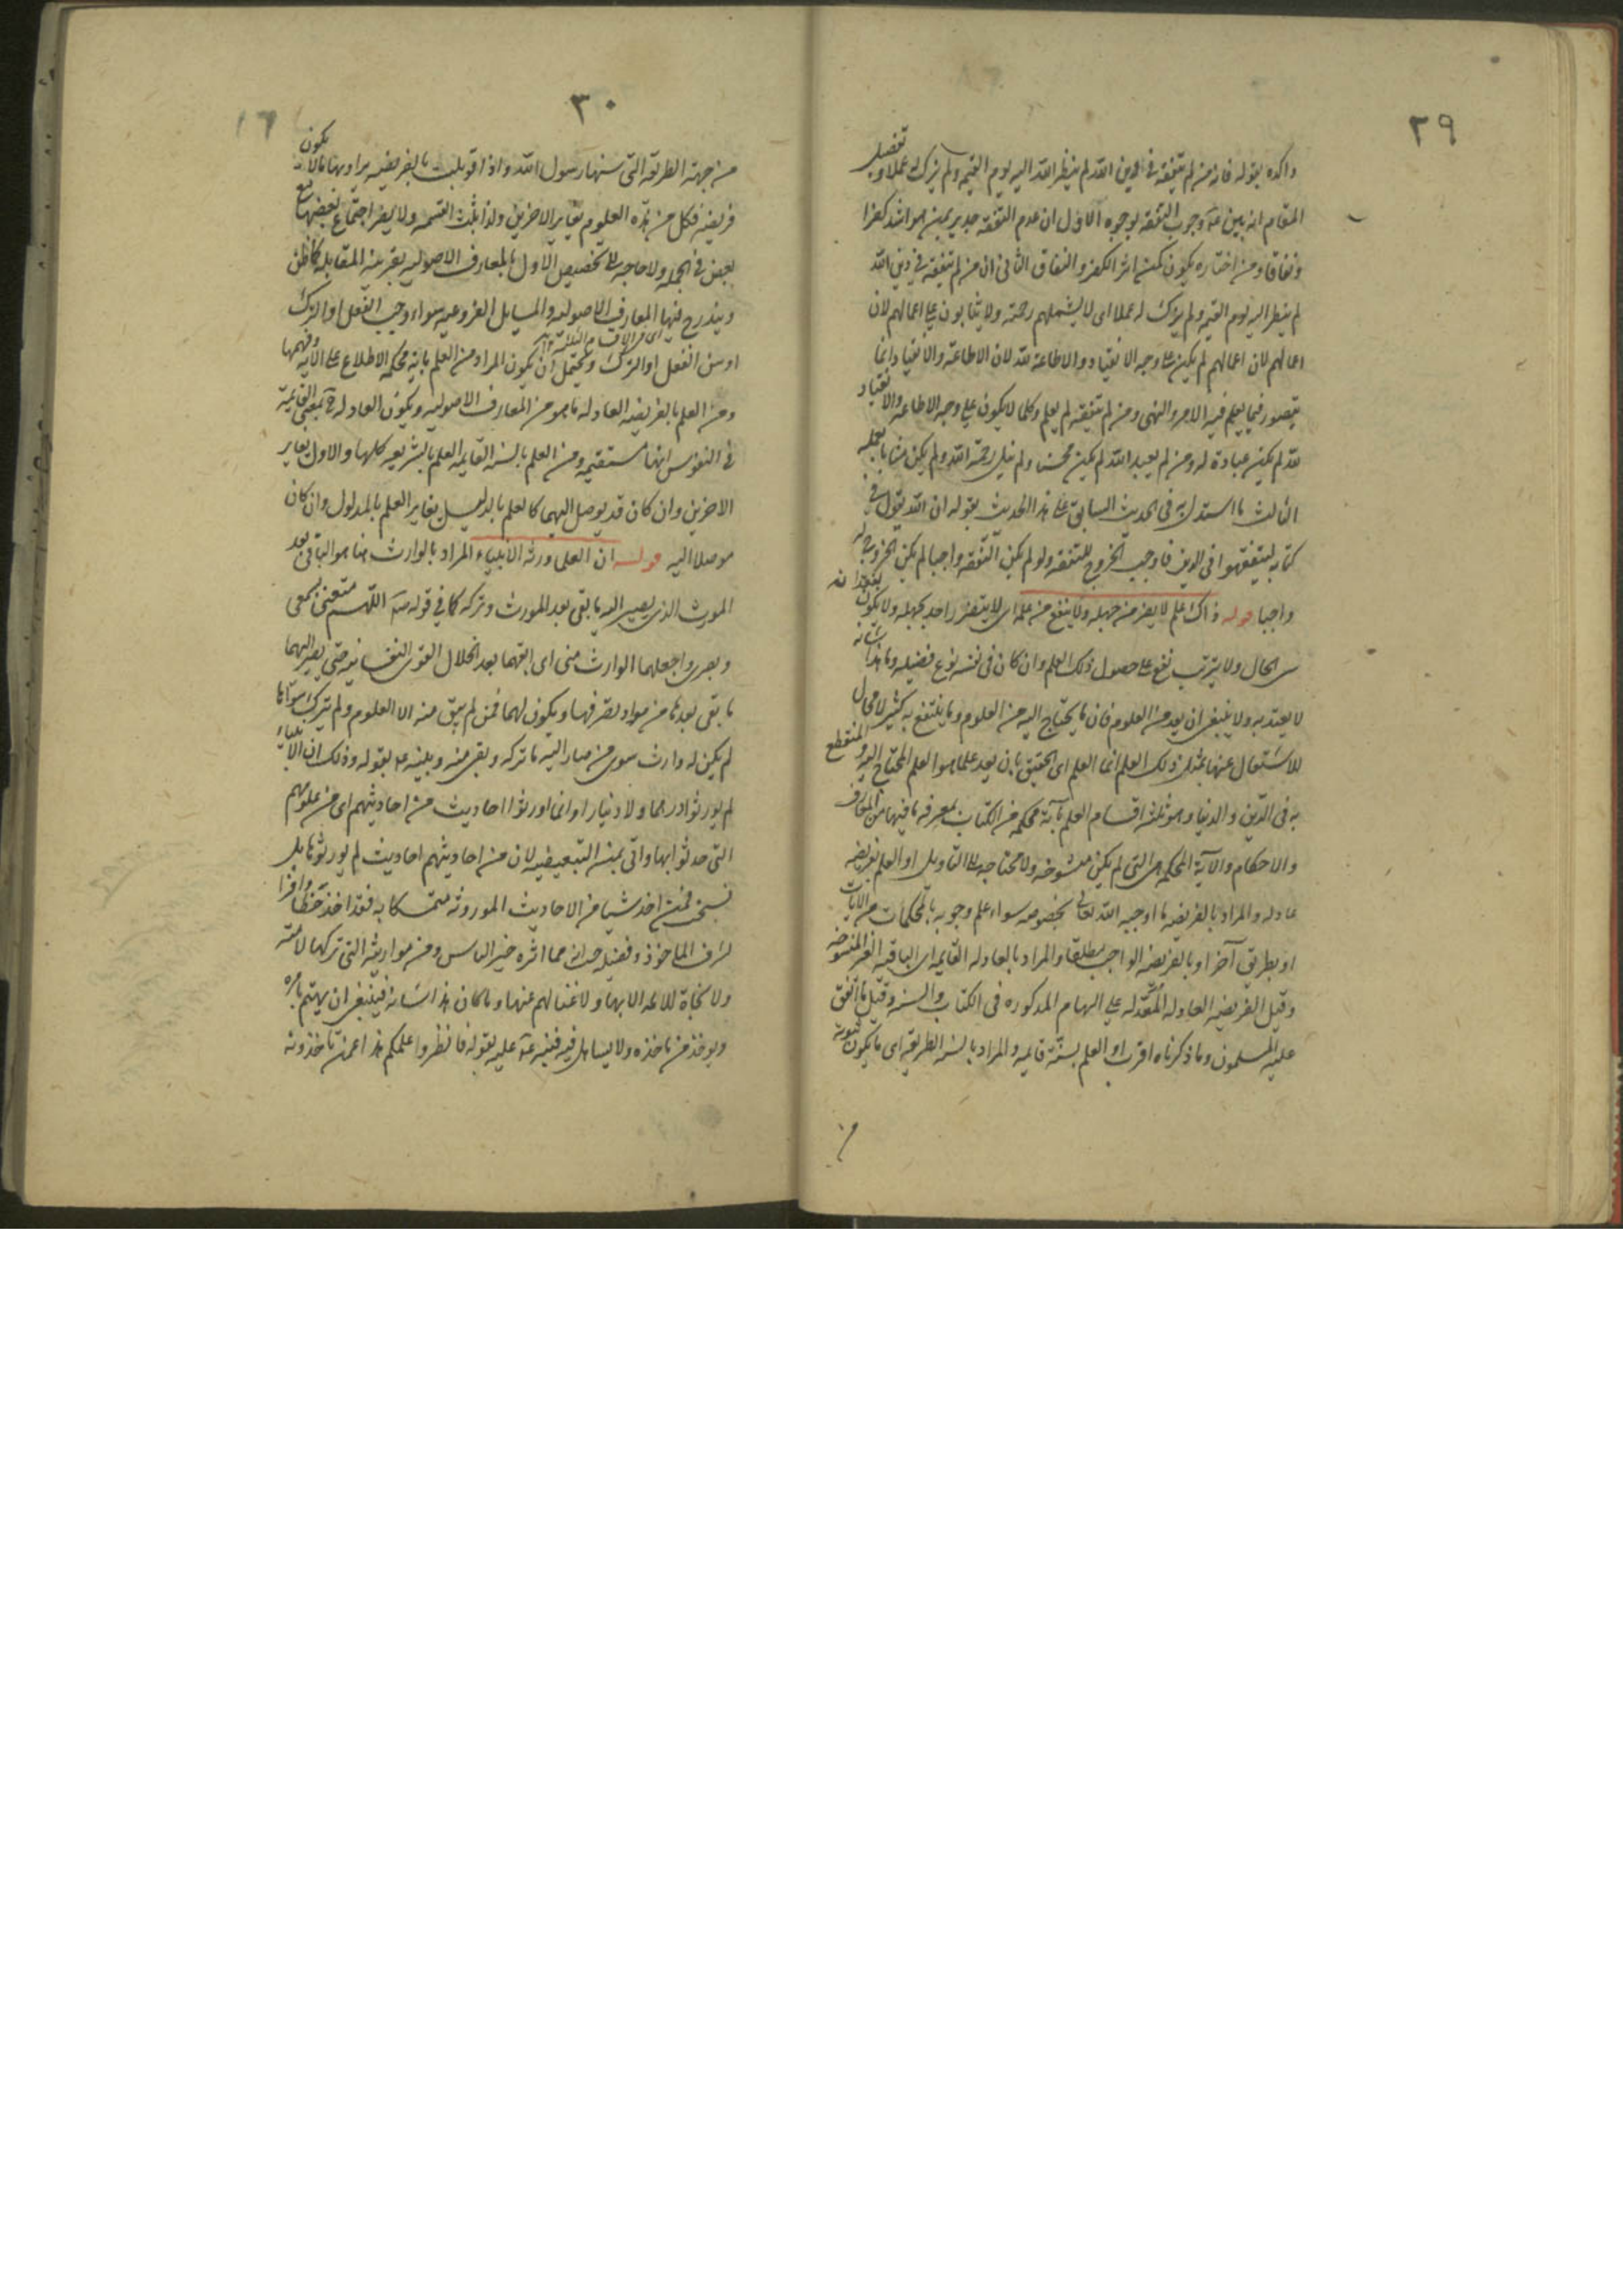 ٢٩
واكده بقوله فانه من لم يتفقه في دين الله لم ينظر الله اليه يوم القيمه ولم يزك له عملا وتفصيل
المقام انه بين عه وجوب التفقه بوجوه الاول ان عدم التفقه جدير بمن هو اشد كفرا
ونفاقا ومن اختاره يكون كمن اثر الكفر والنفاق الثاني ان من لم يتفقه في دين الله
لم ينظر اليه يوم القيمه ولم يزك له عملا اى لا يشملهم رحمته ولا يثابون على اعمالهم لان
اعمالهم لان اعمالهم لم يكن على وجه الانقياد والاطاعة لله لان الاطاعة والانقياد انما
يتصور فيما يعلم فيه الامر والنهى ومن لم يتفقه لم يعلم وكلما لا يكون على وجه الاطاعه والانقياد
لله لم يكن عبادة له ومن لم يعبد الله لم يكن محسنا ولم ينل رحمة الله ولم يكن مثابا بعمله
الثالث ما استدل به في الحديث السابق على هذا الحديث بقوله ان الله يقول في
كتابه ليتفقهوا في الدين فاوجب الخروج للتفقه ولو لم يكن التفقه واجبا لم يكن الخروج له
واجبا قوله ذاك علم لا يضر من جهله ولا ينفع من علمه اى لا يتضرر احد بجهله ولا يكون بفقدانه
سىء الحال ولا يترتب نفع على حصول ذلك العلم وان كان في نفسه نوع فضيله وما هذا شانه
لا يعتد به ولا ينبغى ان يعد من العلوم فان ما يحتاج اليه من العلوم وما ينتفع به كثير لا مجال
للاشتغال عنها بمثل ذلك العلم انما العلم اى الحقيق بان يعد علما هو العلم المحتاج اليه والمنتفع
به في الدين والدنيا وهو ثلثه اقسام العلم بآية محكمه من الكتاب بمعرفه ما فيها من المعارف
والاحكام والآية المحكمه هى التى لم يكن منسوخه ولا محتاجه الى التاويل او العلم بفريضه
عادله والمراد بالفريضه ما اوجبه الله تعالى بخصوصه سواء علم وجوبه بالمحكمات من الآيات
او بطريق آخر او بالفريضه الواجب مطلقا والمراد بالعادله القايمه اى الباقيه الغير المنسوخه
وقيل الفريضه العادله المعدله على السهام المذكوره في الكتاب والسنه وقيل ما اتفق
عليه المسلمون وما ذكرناه اقرب او العلم بسنة قايمه والمراد بالسنه الطريقه اى ما يكون ثبوته
من
٣٠
١٦
من جهة الطريقه التى سنها رسول الله واذا قوبلت بالفريضه يراد بها ما لا يكون
فريضه فكل من هذه العلوم يغاير الاخرين ولذا ثلث القسمه ولا يضر اجتماع بعضها مع
بعض في الجمله ولا حاجه الى تخصيص الاول بالمعارف الاصوليه بقرينه المقابله كما ظن
ويندرج فيها المعارف الاصوليه والمسايل الفروعيه سواء وجب الفعل او الترك
اى في الاقسام الثلثه
او سن الفعل او الترك ويحتمل ان يكون المراد من العلم باية محكمه الاطلاع على الآيه وفهمها
ومن العلم بالفريضه العادله ما هو من المعارف الاصوليه ويكون العادله ح بمعنى القايمة
في النفوس انها مستقيمه ومن العلم بالسنه القايمه العلم بالشريعه كلها والاول يغاير
الاخرين وان كان قد يوصل اليهما كالعلم بالدليل يغاير العلم بالمدلول وان كان
موصلا اليه قوله ان العلما ورثة الانبياء المراد بالوارث هنا هو الباقي بعد
المورث الذى يصير اليه ما بقى بعد المورث وتركه كما في قوله صه اللهم متعنى بسمعى
وبصرى واجعلهما الوارث منى اى ابقهما بعد انحلال القوى النفسانيه حتى يصير اليهما
ما بقى بعدها من مواد تصرفها ويكون لهما فمن لم يبق منه الا العلوم ولم يترك سواها
لم يكن له وارث سوى من صار اليه ما تركه وبقى منه وبينه عه بقوله وذلك ان الانبياء
لم يورثوا درهما ولا دينارا وانما اورثوا احاديث من احاديثهم اى من علومهم
التى حدثوا بها واتى بمن التبعيضيه لان من احاديثهم احاديث لم يورثوها بل
نسخت فمن اخذ شيا من الاحاديث الموروثه متمسكا به فقد اخذ حظا وافرا
لشرف الماخوذ وفضله حيث انه مما اثره خير الناس ومن مواريثه التى تركها لامته
ولا نجاة للامه الا بها ولا غنا لهم عنها وما كان هذا شانه فينبغى ان يهتم بامره
ويوخذ من ماخذه ولا يساهل فيه فنبه عه عليه بقوله فانظروا علمكم هذا عمن تاخذونه